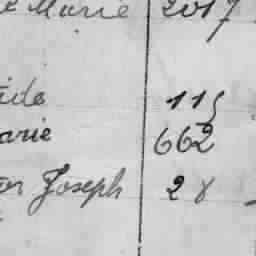 Marie 2017
ide 115
arie 662
Joseph 28